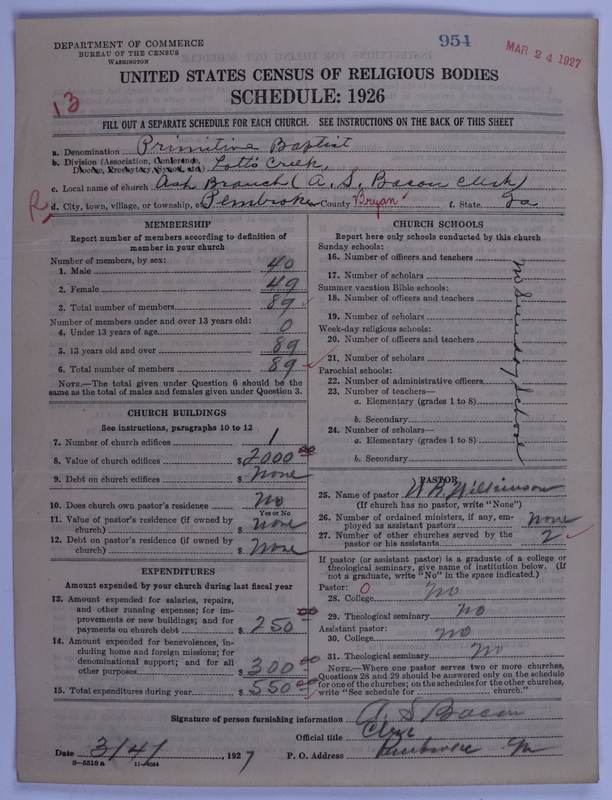 DEPARTMENT OF COMMERCE
BUREAU OF THE CENSUS
WASHINGTON
954
MAR 24 1927
UNITED STATES CENSUS OF RELIGIOUS BODIES
SCHEDULE: 1926
13
FILL OUT A SEPARATE SCHEDULE FOR EACH CHURCH. SEE INSTRUCTIONS ON THE BACK OF THIS SHEET
a. Denomination Primitive Baptist
b. Division (Association, Conference, Diocese, Presbytery, Synod, etc.) Lotts Creek,
c. Local name of church Ash Branch (A. S. Bacon Clerk)
R d. City, town, village, or township, of Pembroke County Bryan f. State Ga
MEMBERSHIP
Report number of members according to definition of member in your church
Number of members, by sex:
1. Male 40
2. Female 49
3. Total number of members 89
Number of members under and over 13 years old:
4. Under 13 years of age 0
5. 13 years old and over 89
6. Total number of members 89
NOTE.—The total given under Question 6 should be the same as the total of males and females given under Question 3.
CHURCH BUILDINGS
See instructions, paragraphs 10 to 12
7. Number of church edifices 1
8. Value of church edifices $ 2000 00
9. Debt on church edifices $ none
10. Does church own pastor's residence no
Yes or No
11. Value of pastor's residence (if owned by church) $ none
12. Debt on pastor's residence (if owned by church) $ none
EXPENDITURES
Amount expended by your church during last fiscal year
13. Amount expended for salaries, repairs, and other running expenses; for improvements or new buildings; and for payments on church debt $ 250 00
14. Amount expended for benevolences, including home and foreign missions; for denominational support; and for all other purposes $ 300 00
15. Total expenditures during year $ 550 00
CHURCH SCHOOLS
Report here only schools conducted by this church
Sunday schools:
16. Number of officers and teachers
17. Number of scholars
Summer vacation Bible schools:
18. Number of officers and teachers
19. Number of scholars
Week-day religious schools:
20. Number of officers and teachers
21. Number of scholars
Parochial schools:
22. Number of administrative officers
23. Number of teachers—
a. Elementary (grades 1 to 8)
b. Secondary
24. Number of scholars—
a. Elementary (grades 1 to 8)
b. Secondary
no Sunday School
PASTOR
25. Name of pastor Wilkinson
(If church has no pastor, write "None")
26. Number of ordained ministers, if any, employed as assistant pastors none
27. Number of other churches served by the pastor or his assistants 2
If pastor (or assistant pastor) is a graduate of a college or theological seminary, give name of institution below. (If not a graduate, write "No" in the space indicated.)
Pastor: 0
28. College no
29. Theological seminary no
Assistant pastor:
30. College no
31. Theological seminary no
NOTE.—Where one pastor serves two or more churches, Questions 28 and 29 should be answered only on the schedule for one of the churches; on the schedules for the other churches, write "See schedule for church."
Signature of person furnishing information A. S Bacon
Official title Clerk
Date 3/4/, 1927 P. O. Address Pembroke Ga
8—5518a 11—9064